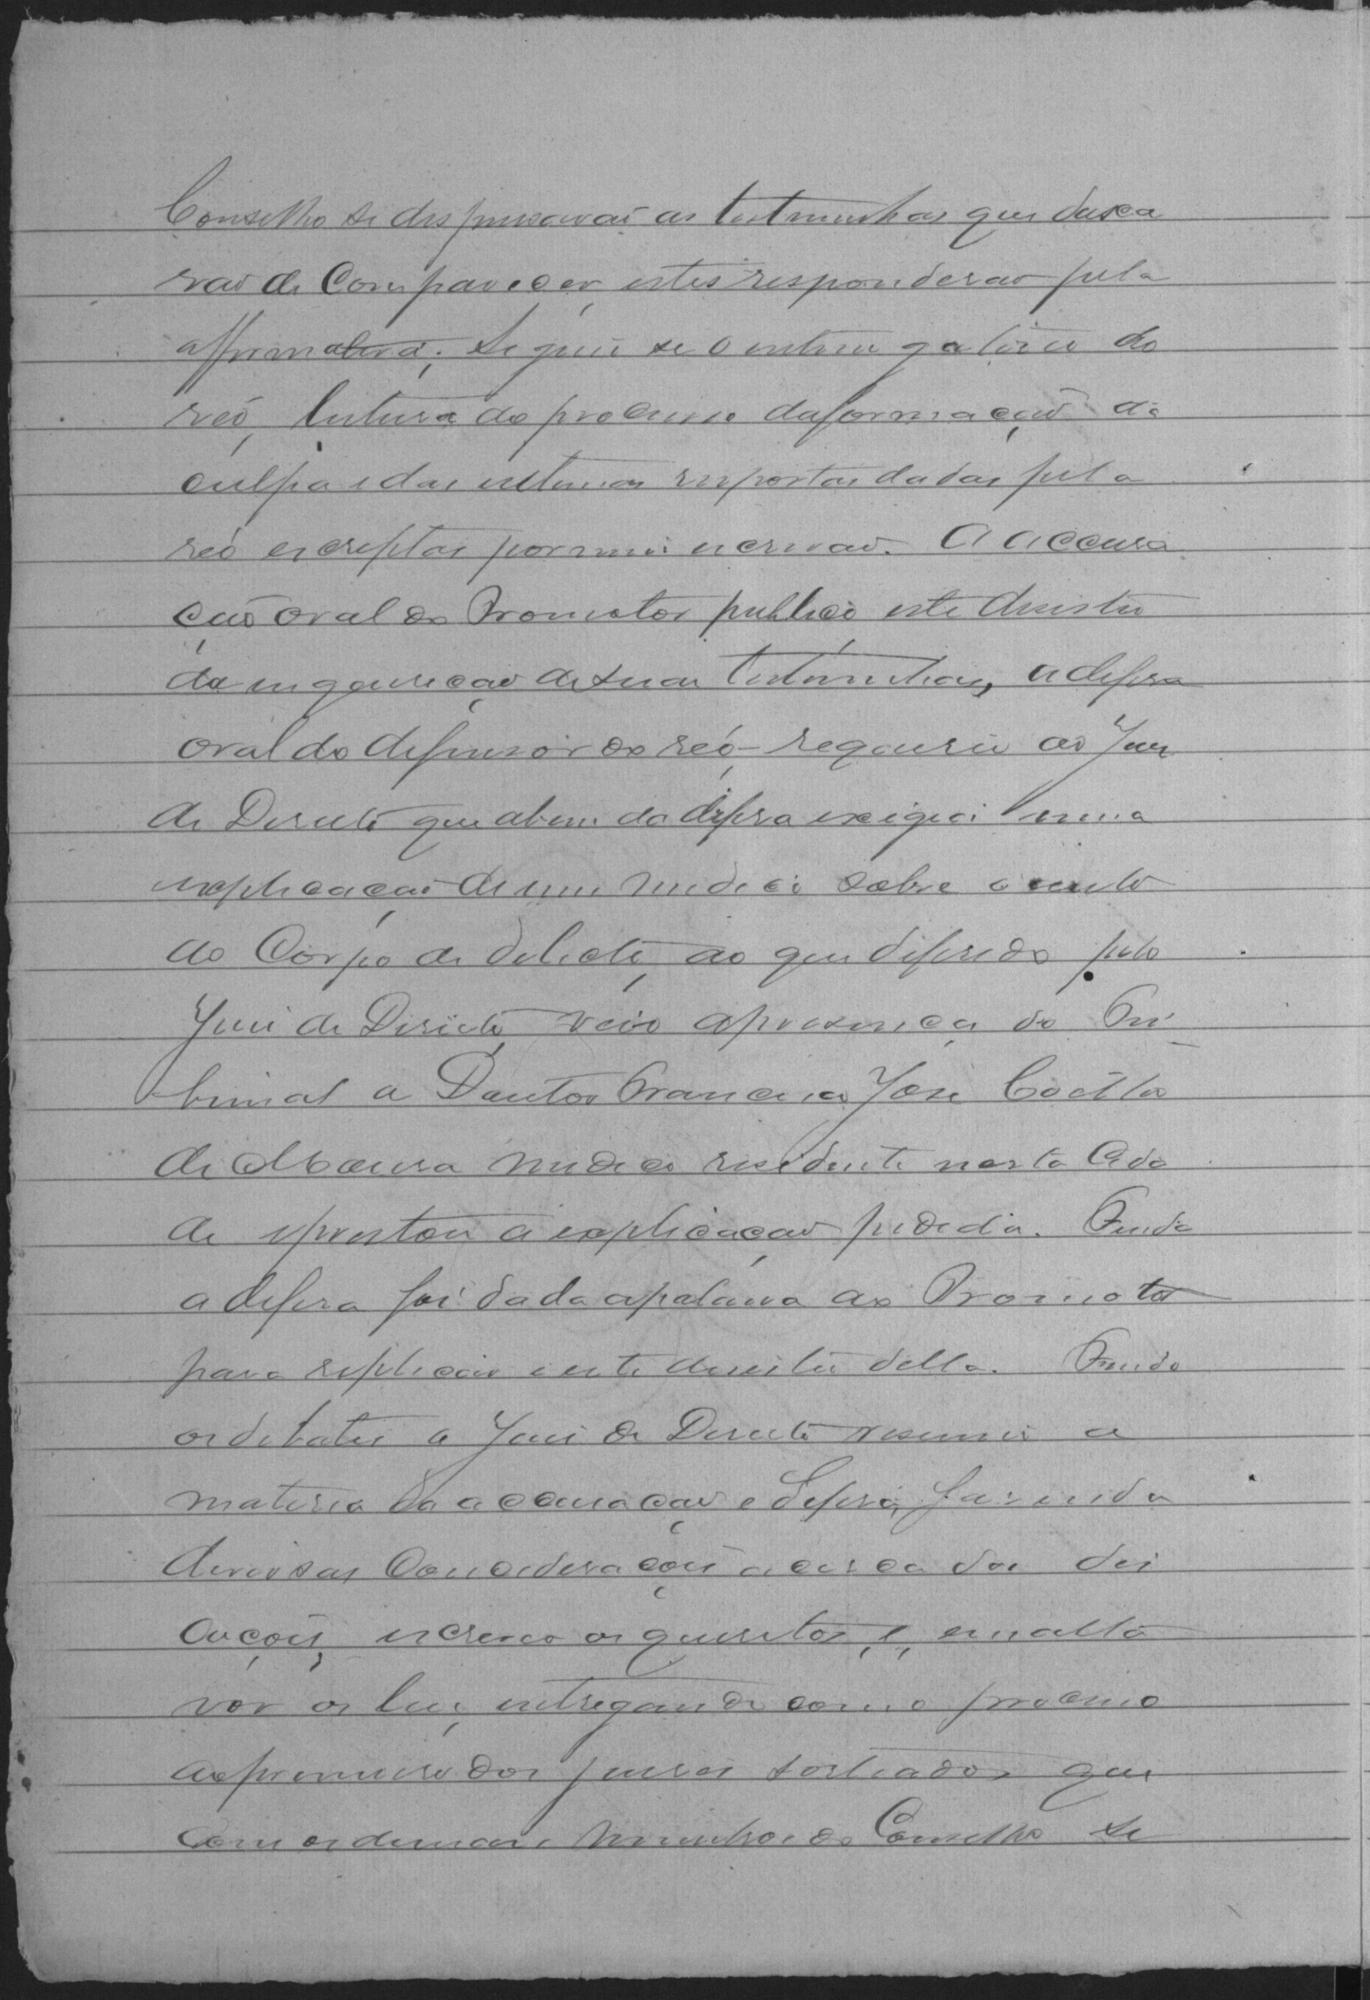 Conselho se despensavaõ as testimunhas que deixa
raõ de Comparecer, estes responderaõ pela
affirmativa; Seguiu se o interrogatorio do
reó, leitura do processo da formaçaõ da
culpa e das ultimas respostas dadas pelo
reó escriptas por mim escrivaõ. A accusa
çaõ oral do Promotor publico este desistiu
da inquiriçaõ de suas testimunhas, a defesa
oral do defensor do reó requereu ao Juiz
de Direito que a bem da defesa exigia uma
explicaçaõ de um medico sobre o auto
do Corpo de delicto, ao que deferido pelo
Juiz de Direito, veio a presença do Tri
bunal o Doutor Francisco José Coelho
de Moura medico residente nesta Cida
de e prestou a explicaçaõ pedida. Finda
a defesa foi dada a palavra ao Promotor
para replicar e este desistiu della. Findo
os debates o Juiz de Direito resumiu a
materia da accusaçaõ e defesa, fazendo
diversas Consideraçoẽs a cerca das dis
cuçoẽs, escreveo os quesitos, e, em alta
voz os leu, entregando com o processo
ao primeiro dos juizes sorteados que
com os demais membros do Conselho se